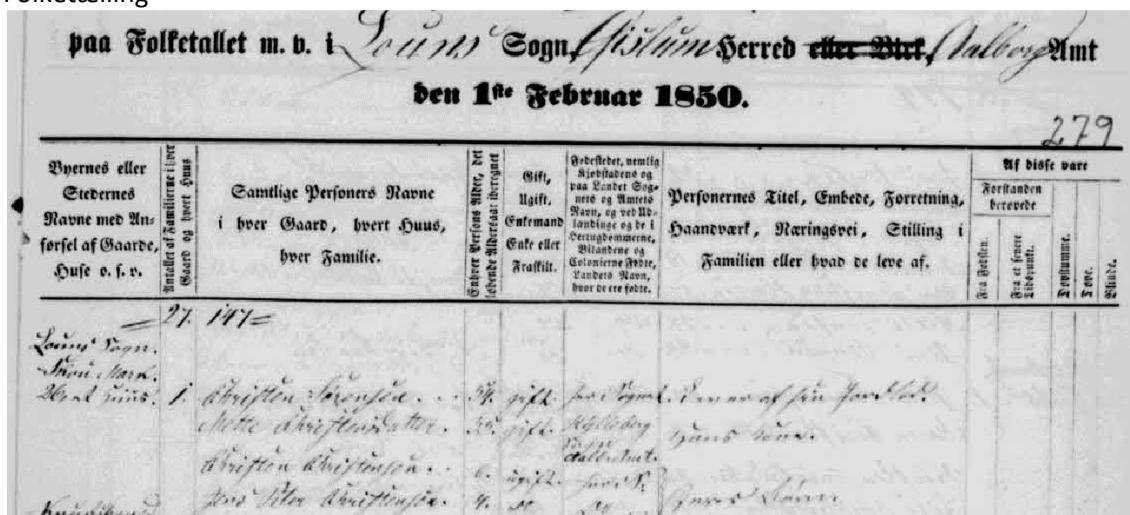 paa Folketallet m. v. i Louns Sogn, Gislum Herred eller Birk, Aalborg Amt
den 1ste Februar 1850.
279
Byernes eller
Stedernes
Navne med An-
førsel af Gaarde,
Huse o. s. v.
Antallet af Familierne i hver
Gaard og hvert Huus.
Samtlige Personers Navne
i hver Gaard, hvert Huus,
hver Familie.
Enhver Persons Alder, det
løbende Aldersaar iberegnet
Gift,
Ugift,
Enkemand
Enke eller
Fraskilt.
Fødesteder, nemlig
Kjøbstadens og
paa Landet Sog-
nets og Amtets
Navn, og ved Ud-
lændinge og de i
Hertugdømmerne,
Bilandene og
Colonierne Fødte,
Landets Navn,
hvor de ere fødte.
Personernes Titel, Embede, Forretning,
Haandværk, Næringsvei, Stilling i
Familien eller hvad de leve af.
Af disse vare
Forstanden
berøvede
Fra Fødselen.
Fra et senere
Tidspunkt.
Døvstumme.
Døve.
Blinde.
27. 147
Louns Sogn.
Mark.
Huus. 1. Christen Sørensen 54. gift her Sognet. Lever af sin Jordlod.
Mette Christensdatter. gift. hans Kone.
Sogn
Christen Christensen. 6. ugift
Jens Peter Christensen. 4. do do deres Børn.